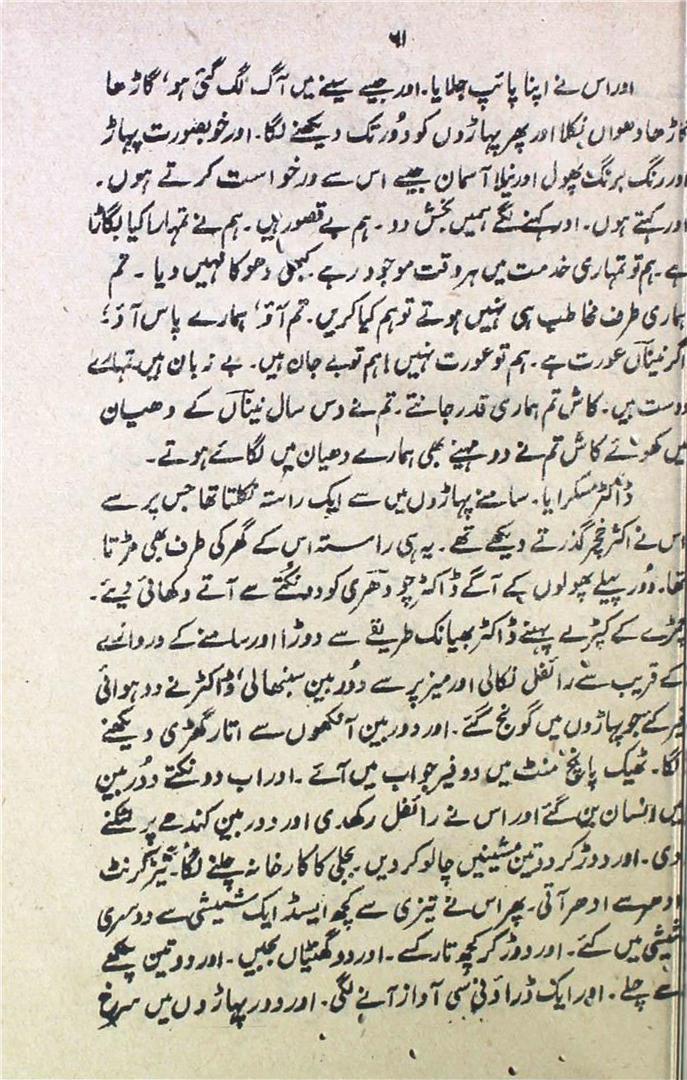 ۶۱
اور اس نے اپنا پائپ جلایا۔ اور جیسے سینے میں آگ لگ گئی ہو، گاڑھا
گاڑھا دھواں نکلا اور پھر پہاڑوں کو دُور تک دیکھنے لگا۔ اور خوبصورت پہاڑ
اور رنگ برنگ پھول اور نیلا آسمان جیسے اس سے درخواست کرتے ہوں۔
اور کہتے ہوں۔ اور کہنے لگے ہمیں بخش دو۔ ہم بے قصور ہیں۔ ہم نے تمہارا کیا بگاڑا
ہے۔ ہم تو تمہاری خدمت میں ہر وقت موجود رہے۔ کبھی دھوکا نہیں دیا۔ تم
ہماری طرف مخاطب ہی نہیں ہوتے تو ہم کیا کریں۔ تم آؤ، ہمارے پاس آؤ؛
اگر نیناں عورت ہے۔ ہم تو عورت نہیں! ہم تو بے جان ہیں۔ بے زبان ہیں تمہارے
دوست ہیں۔ کاش تم ہماری قدر جانتے۔ تم نے دس سال نیناں کے دھیان
میں کھوئے کاش تم نے دو مہینے بھی ہمارے دھیان میں لگائے ہوتے۔
ڈاکٹر مسکرایا۔ سامنے پہاڑوں میں سے ایک راستہ نکلتا تھا جس پر سے
اس نے اکثر خچر گذرتے دیکھے تھے۔ یہ ہی راستہ اس کے گھر کی طرف بھی مڑتا
تھا۔ دُور پیلے پھولوں کے آگے ڈاکٹر چودھری کو دو نکتے سے آتے دکھائی دیئے۔
چمڑے کے کپڑے پہنے ڈاکٹر بھیانک طریقے سے دوڑا اور سامنے کے دروازے
کے قریب سے رائفل نکالی اور میز پر سے دُوربین سنبھالی، ڈاکٹر نے دو ہوائی
فیر کے جو پہاڑوں میں گونج گئے۔ اور دوربین آنکھوں سے اتار گھڑی دیکھنے
لگا۔ ٹھیک پانچ منٹ میں دو فیر جواب میں آئے۔ اور اب دو نکتے دُوربین
میں انسان بن گئے اور اس نے رائفل رکھدی اور دوربین کندھے پر لٹکنے
دی۔ اور دوڑ کر دو تین مشینیں چالو کر دیں۔ بجلی کا کارخانہ چلنے لگا۔ تیز کرنٹ
ادھر سے ادھر آتی۔ پھر اس نے تیزی سے کچھ ایسڈ ایک شیشی سے دوسری
شیشی میں کئے۔ اور دوڑ کر کچھ تار کسے۔ اور دو گھنٹیاں بجیں۔ اور دو تین پنکھے
سے چلے۔ اور ایک ڈراؤنی سی آواز آنے لگی۔ اور دور پہاڑوں میں سرخ